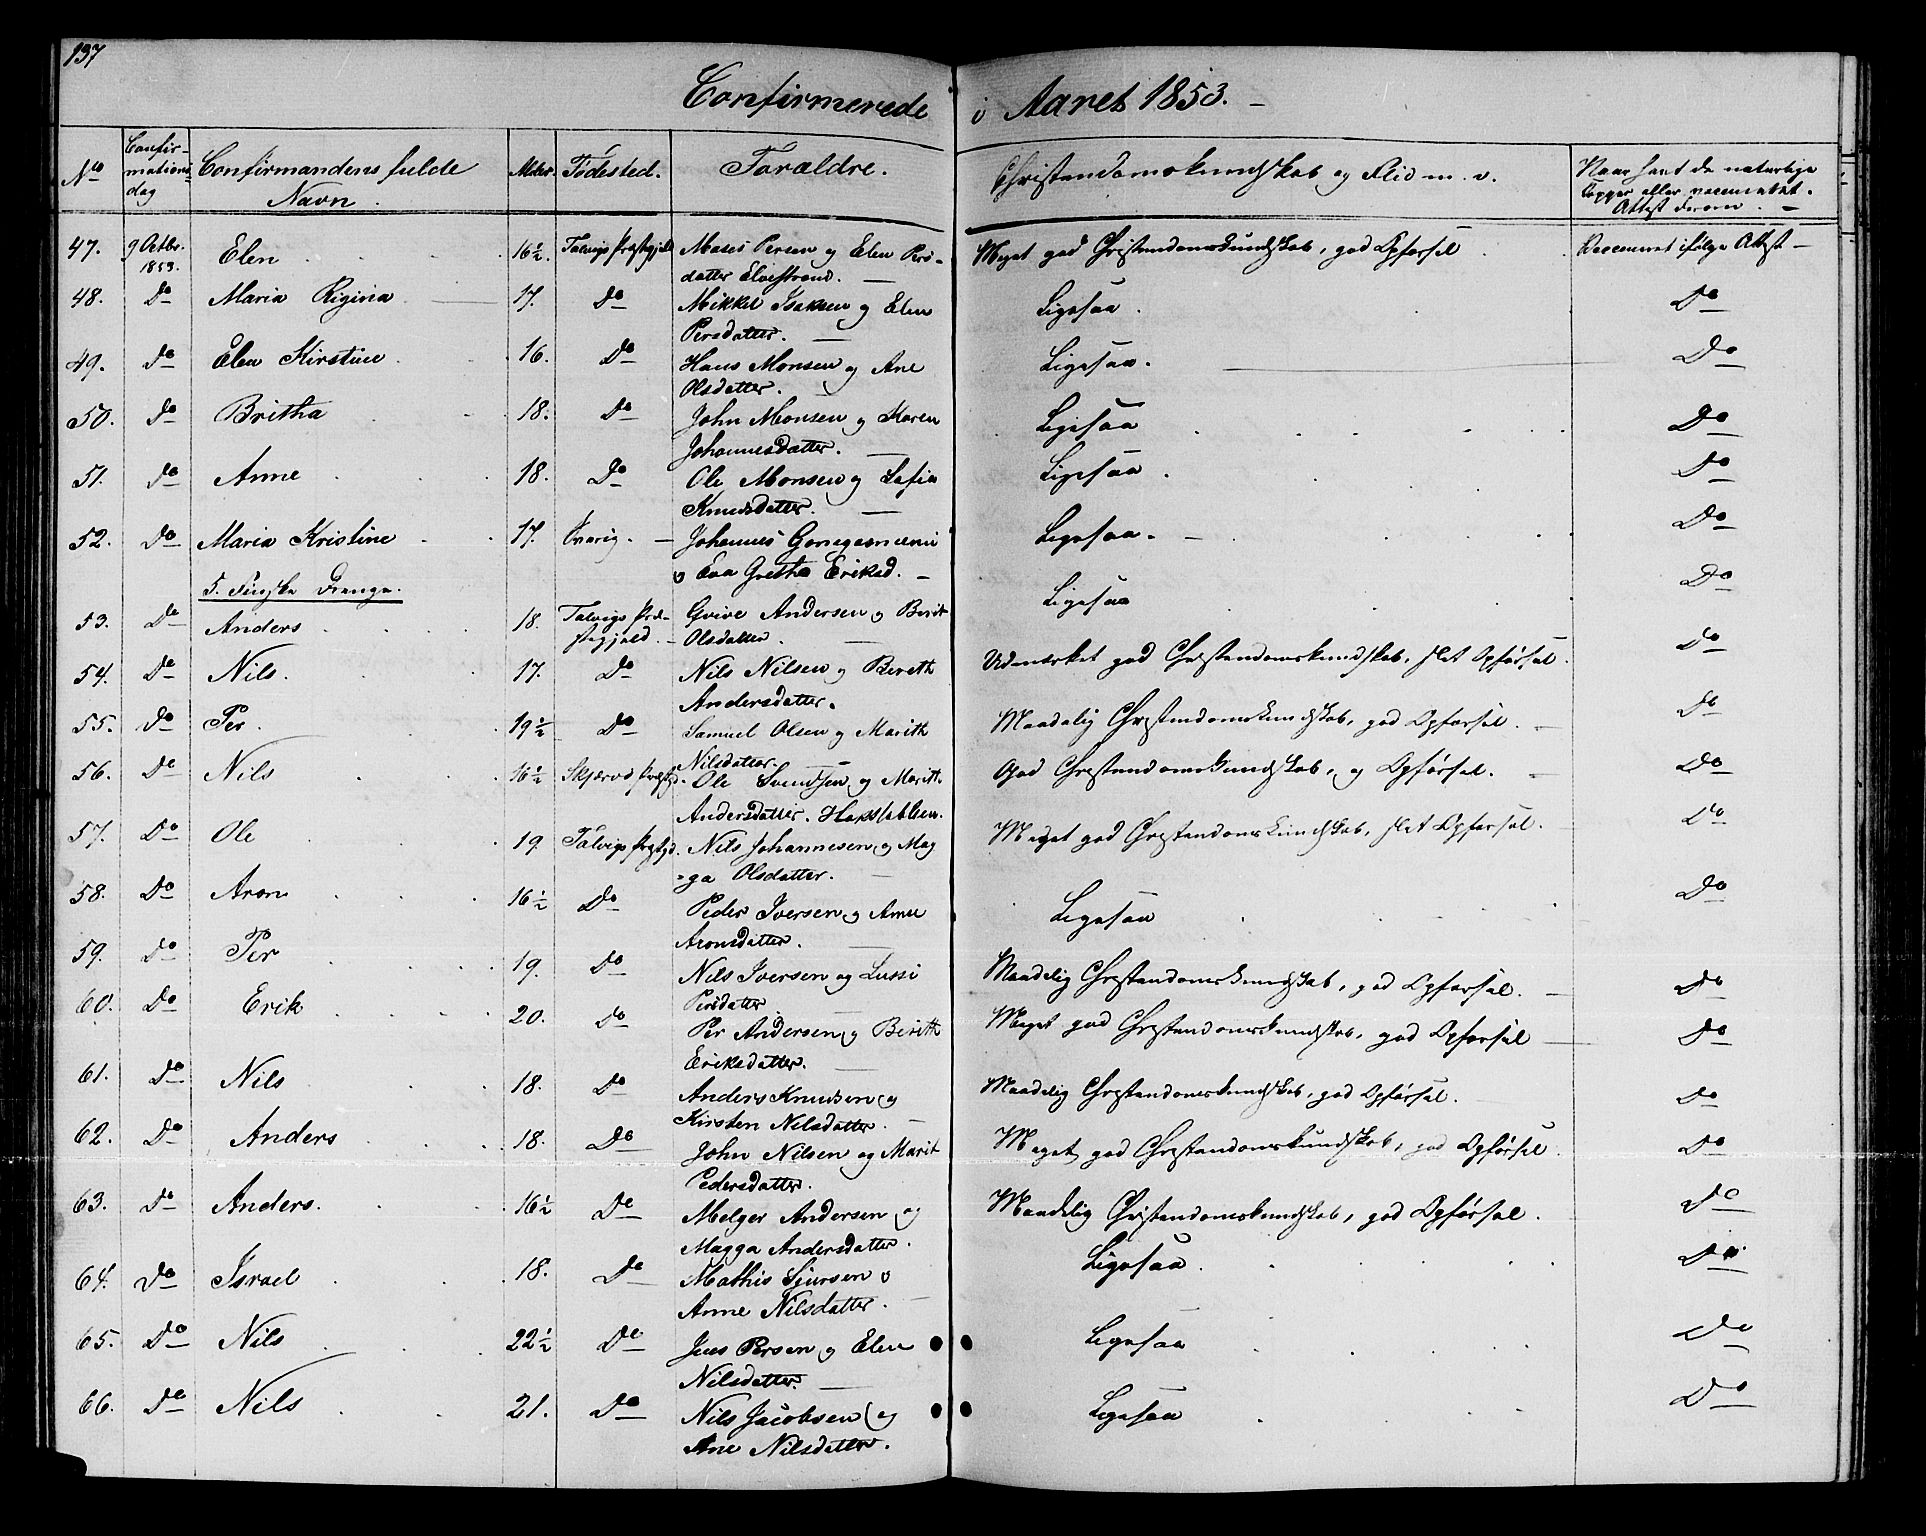 137
Confirmerede i Aaret 1853. –
No Confir- Confirmandens fulde Alder. Födested. Forældre. Christendomskundskab og Flid m. v. Naar havt de naturlige
mations Navn. Kopper eller vaccineret.
dag Attest derom. –
47. 9 Octbr. Elen 16½. Talvigs Præstegjeld Moses Persen og Elen Pers- Meget god Christendomskundskab, god Opförsel Vaccineret ifølge Attest –
1853. datter Elvestrand. –
48. Do Maria Rigina 17. Do Mikkel Isaksen og Elen Ligesaa. Do
Persdatter. –
49. Do Elen Kirstine 16. Do Hans Monsen og Ane Ligesaa. Do
Olsdatter. –
50. Do Britha 18. Do John Monsen og Karen Ligesaa Do
Johannesdatter. –
51. Do Anne 18. Do Ole Monsen og Sofia Ligesaa Do
Knudsdatter. –
52. Do Maria Kristine 17. Johannes Ligesaa. Do
og Eva Gretha Eriksd. –
Drenge.
53. Do Anders 18. Talvigs Præ- Andersen og Berit Ligesaa Do
stegjeld. Olsdatter. –
54. Do Nils. 17. Do Nils Nilsen og Bereth Udmerket god Christendomskundskab, slet Opförsel. Do
Andersdatter.
55. Do Per. 19½ Do Samuel Olsen og Marith Maadelig Christendomskundskab, god Opförsel. Do
Nilsdatter. –
56. Do Nils 16½ Skjærvö Præstgjd. Ole Svendsen og Marith God Christendomskundskab, og Opförsel. Do
Andersdatter.
57. Do Ole 19. Talvigs Præstgjd. Nils Johannesen og Mag Meget god Christendomskundskab, slet Opförsel. Do
-ga Olsdatter. –
58. Do Aron 16½ Do Peder Iversen og Anne Ligesaa Do
Aronsdatter. –
59. Do Per 19. Do Nils Iversen og Lussi Maadelig Christendomskundskab, god Opförsel. Do
Persdatter
60. Do Erik 20. Do Per Andersen og Berith Meget god Christendomskundskab, god Opförsel Do
Eriksdatter. –
61. Do Nils 18. Do Anders Knudsen og Maadelig Christendomskundskab, god Opförsel. Do
Kirsten Nilsdatter. –
62. Do Anders 18. Do John Nilsen og Marit Meget god Christendomskundskab, god Opförsel. Do
Pedersdatter.
63. Do Anders. 16½ Do Melger Andersen og Maadelig Christendomskundskab, god Opförsel. Do
Magga Andersdatter.
64. Do Israel 18. Do Mathis Sjursen o Ligesaa. Do
Anne Nilsdatter. –
65. Do Nils 22½ Do Jens Persen og Elen Ligesaa Do
Nilsdatter. –
66. Do Nils 21. Do Nils Jacobsen og Ligesaa Do
Ane Nilsdatter.